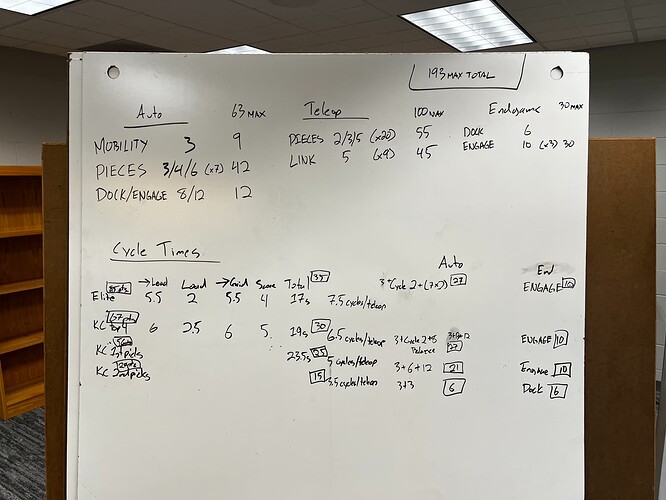 193 MAX TOTAL
Auto 63 MAX Teleop 100 MAX Endgame 30 MAX
MOBILITY 3 9 PIECES 2/3/5 (x20) 55 DOCK 6
PIECES 3/4/6 (x7) 42 LINK 5 (x9) 45 ENGAGE 10 (x3) 30
DOCK/ENGAGE 8/12 12
Cycle Times Auto End
→Load Load →Grid Score Total 35 3+Cycle 2+(7x2) 27 ENGAGE 10
Elite 5.5 2 5.5 4 17s 7.5 cycles/teleop
KC Top 4 6 2.5 6 5 19s 30 6.5 cycles/teleop 3+Cycle 2+8 Balance 27 ENGAGE 10
KC 1st picks 23.5s 25 5 cycles/teleop 3+6+12 21 Engage 10
KC 2nd picks 15 3.5 cycles/teleop 3+3 6 Dock 6